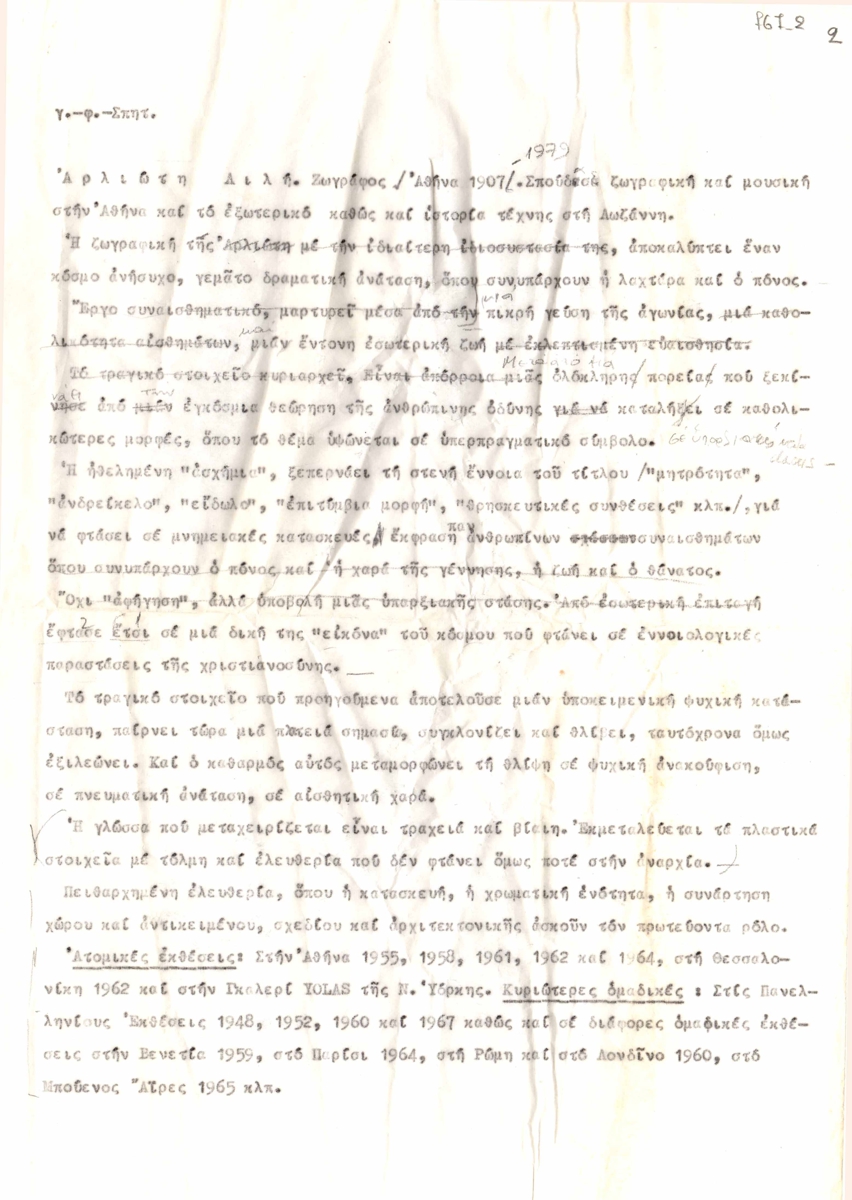 Ρ61_2
2
γ.-φ.-Σπητ.
1979
Ἀ ρ λ ι ώ τ η Λ ι λ ή. Ζωγράφος /Ἀθήνα 1907/. Σπούδασε ζωγραφική καί μουσική
στήν Ἀθήνα καί τό ἐξωτερικό καθώς καί ἱστορία τέχνης στή Λωζάννη.
Ἡ ζωγραφική τῆς Ἀρλιώτη μέ τήν ἰδιαίτερη ἰδιοσυστασία της, ἀποκαλύπτει ἕναν
κόσμο ἀνήσυχο, γεμᾶτο δραματική ἀνάταση, ὅπου συνυπάρχουν ἡ λαχτάρα καί ὁ πόνος.
μια
Ἔργο συναισθηματικό, μαρτυρεῖ μέσα ἀπό τήν πικρή γεύση τῆς ἀγωνίας, μιά καθο-
και
λικότητα αἰσθημάτων, μιάν ἔντονη ἐσωτερική ζωή μέ ἐκλεπτισμένη εὐαισθησία.
Τό τραγικό στοιχεῖο κυριαρχεῖ. Εἶναι ἀπόρροια μιᾶς ὁλόκληρης πορείας πού ξεκί-
την
νησε ἀπό μιάν ἐγκόσμια θεώρηση τῆς ἀνθρώπινης ὀδύνης γιά νά καταλήξει σέ καθολι-
κώτερες μορφές, ὅπου τό θέμα ὑψώνεται σέ ὑπερπραγματικό σύμβολο.
Ἡ ἠθελημένη "ἀσχήμια", ξεπερνάει τή στενή ἔννοια τοῦ τίτλου /"μητρότητα",
"ἀνδρείκελο", "εἴδωλο", "ἐπιτύμβια μορφή", "θρησκευτικές συνθέσεις" κλπ./, γιά
νά φτάσει σέ μνημειακές κατασκευές, ἔκφραση παν ἀνθρωπίνων συναισθημάτων
ὅπου συνυπάρχουν ὁ πόνος καί ἡ χαρά τῆς γέννησης, ἡ ζωή καί ὁ θάνατος.
Ὄχι "ἀφήγηση", ἀλλά ὑποβολή μιᾶς ὑπαρξιακῆς στάσης. Ἀπό ἐσωτερική ἐπιταγή
ἔφτασε ἔτσι σέ μιά δική της "εἰκόνα" τοῦ κόσμου πού φτάνει σέ ἐννοιολογικές
παραστάσεις τῆς χριστιανοσύνης.
Τό τραγικό στοιχεῖο πού προηγούμενα ἀποτελοῦσε μιάν ὑποκειμενική ψυχική κατά-
σταση, παίρνει τώρα μιά πλατειά σημασία, συγκλονίζει καί θλίβει, ταυτόχρονα ὅμως
ἐξιλεώνει. Καί ὁ καθαρμός αὐτός μεταμορφώνει τή θλίψη σέ ψυχική ἀνακούφιση,
σέ πνευματική ἀνάταση, σέ αἰσθητική χαρά.
Ἡ γλῶσσα πού μεταχειρίζεται εἶναι τραχειά καί βίαιη. Ἐκμεταλεύεται τά πλαστικά
στοιχεῖα μέ τόλμη καί ἐλευθερία πού δέν φτάνει ὅμως ποτέ στήν ἀναρχία.
Πειθαρχημένη ἐλευθερία, ὅπου ἡ κατασκευή, ἡ χρωματική ἑνότητα, ἡ συνάρτηση
χώρου καί ἀντικειμένου, σχεδίου καί ἀρχιτεκτονικῆς ἀσκοῦν τόν πρωτεύοντα ρόλο.
Ἀτομικές ἐκθέσεις: Στήν Ἀθήνα 1955, 1958, 1961, 1962 καί 1964, στή Θεσσαλο-
νίκη 1962 καί στήν Γκαλερί YOLAS τῆς Ν. Ὑόρκης. Κυριώτερες ὁμαδικές : Στίς Πανελ-
ληνίους Ἐκθέσεις 1948, 1952, 1960 καί 1967 καθώς καί σέ διάφορες ὁμαδικές ἐκθέ-
σεις στήν Βενετία 1959, στό Παρίσι 1964, στή Ρώμη καί στό Λονδῖνο 1960, στό
Μπουένος Ἄϊρες 1965 κλπ.